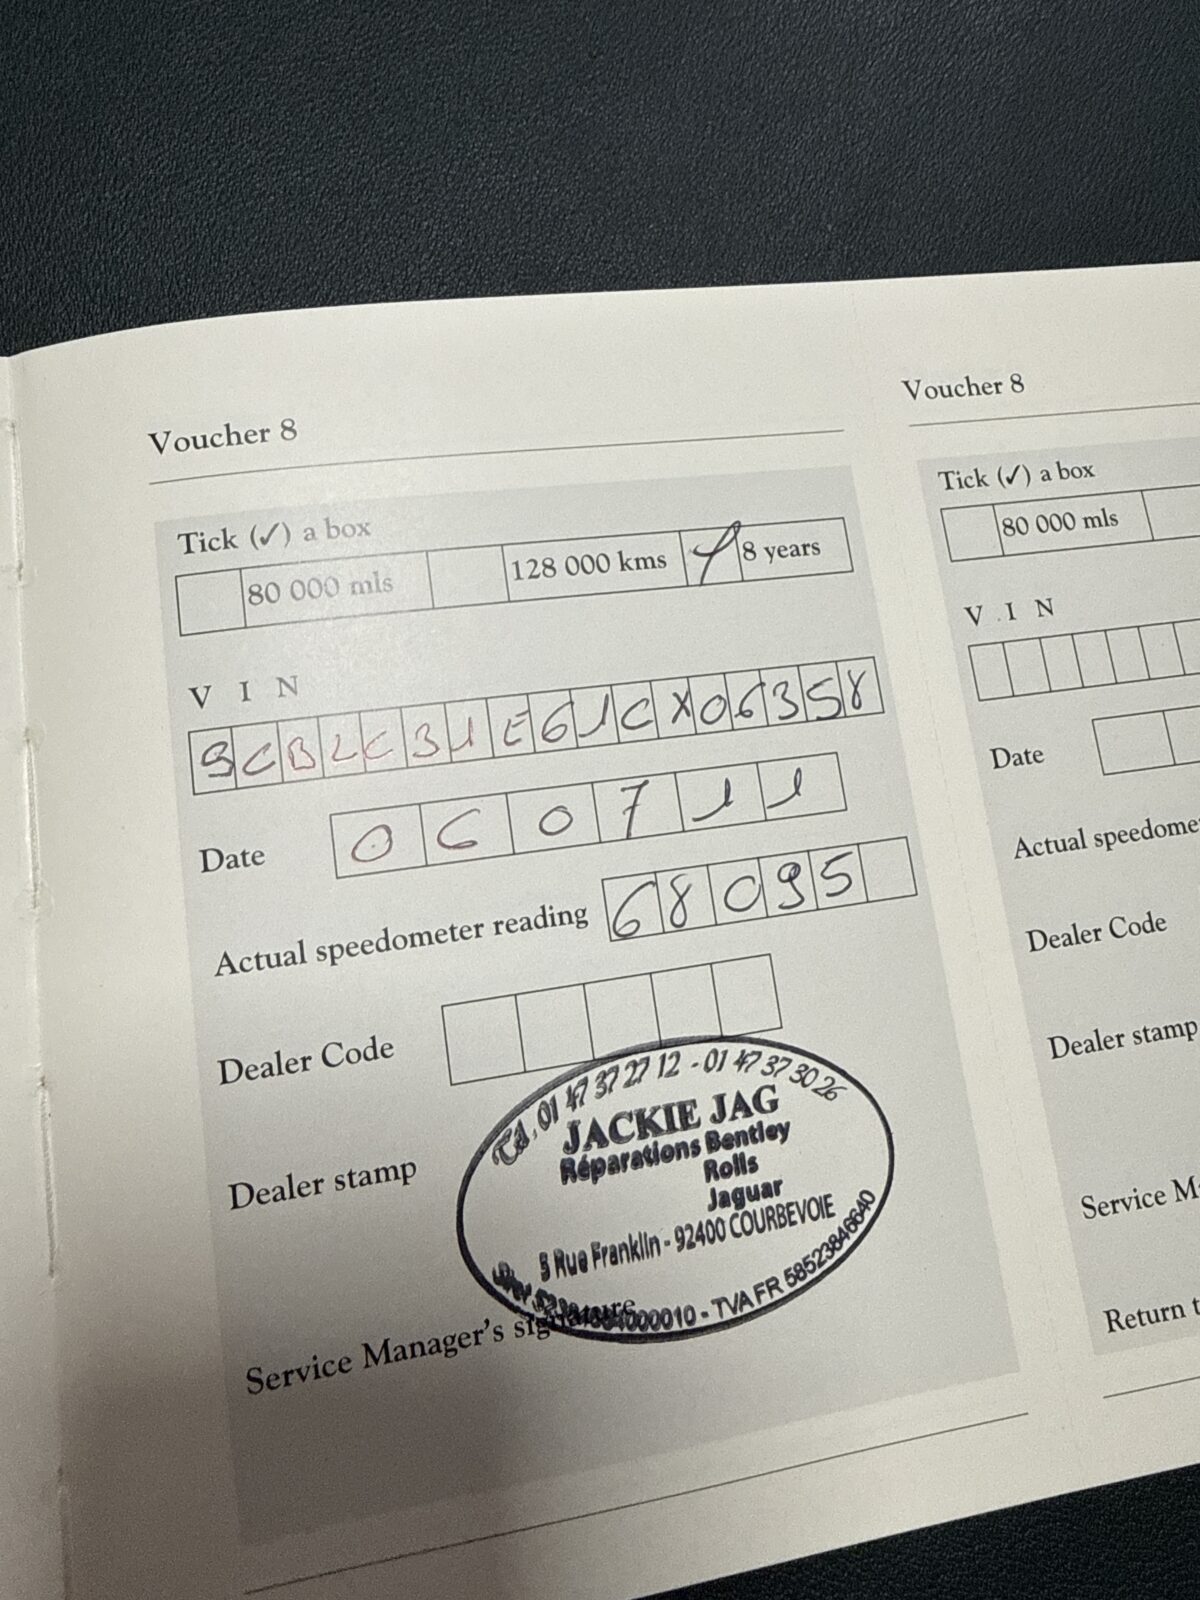 Voucher 8
Tick (✓) a box
80 000 mls 128 000 kms 8 years
V I N
SCBLC31E61CX06358
Date 060711
Actual speedometer reading 68095
Dealer Code
Dealer stamp
Tél. 01 47 37 27 12 - 01 47 37 30 26
JACKIE JAG
Réparations Bentley
Rolls
Jaguar
5 Rue Franklin - 92400 COURBEVOIE
000010 - TVA FR 58523846640
Service Manager's signature
Voucher 8
Tick (✓) a box
80 000 mls
V I N
Date
Actual speedome
Dealer Code
Dealer stamp
Service M
Return t